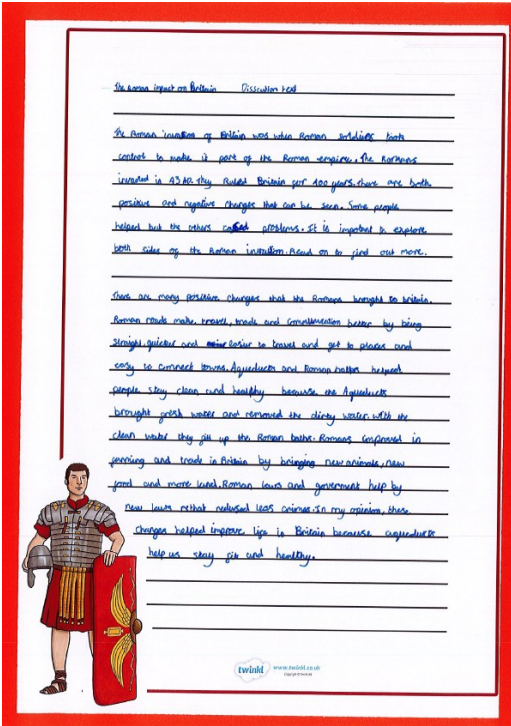 The Roman impact on Britain Disscution text
The Roman invasion of Britain was when Roman soldiers took
control to make it part of the Roman empire. The Romans
invaded in 43 AD. They ruled Britain for 400 years. There are both
positive and negative changes that can be seen. Some people
helped but the others caused problems. It is important to explore
both sides of the Roman invation. Read on to find out more.
There are many positive changes that the Romans brought to Britain.
Roman roads make travel, trade and commutication better by being
straight, quicker and easier to travel and get to places and
easy to connect towns. Aqueducts and Roman baths helped
people stay clean and healthy because the Aqueducts
brought fresh water and removed the dirty water. With the
clean water they fill up the Roman baths. Romans improved in
farming and trade in Britain by bringing new animals, new
food and more land. Roman laws and government help by
new laws that redused less crimes. In my opinion, these
changes helped improve life in Britain because aqueducts
help us stay fit and healthy.
twinkl www.twinkl.co.uk